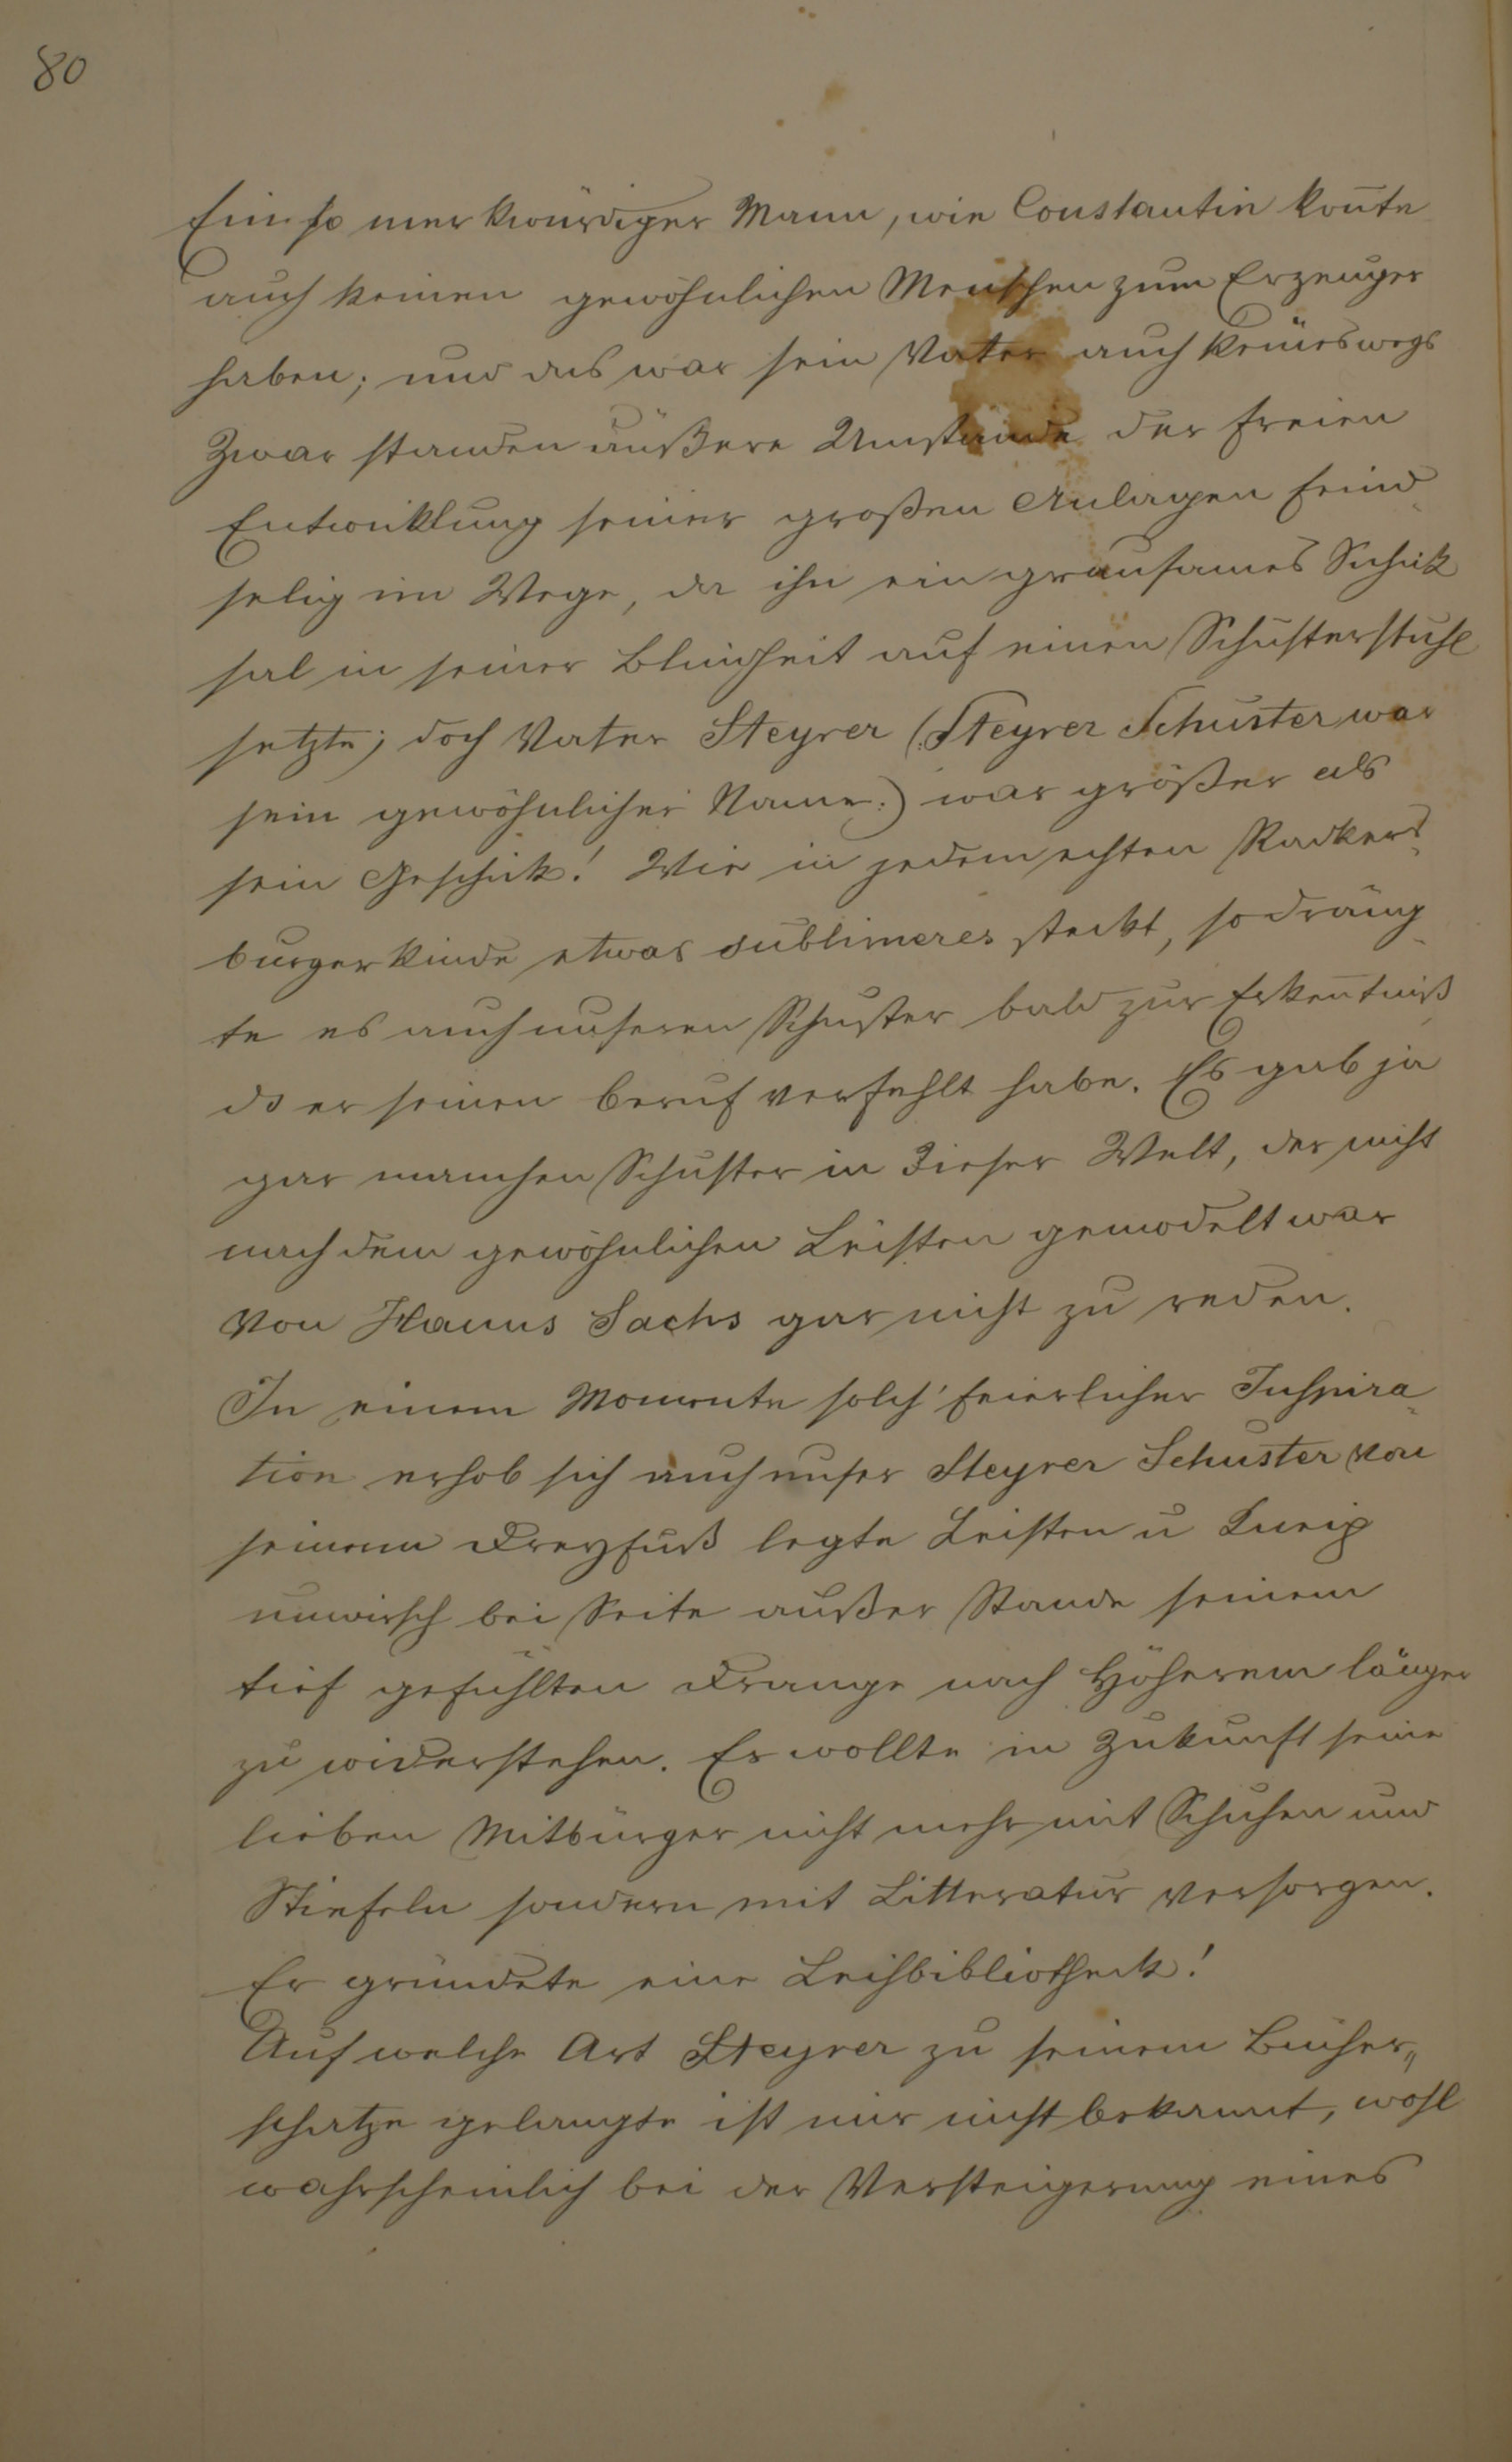 80
Ein so merkwürdiger Mann, wie Constantin kon̄te
auch keinen gewöhnlichen Menschen zum Erzeuger
haben; und das war sein Vater auch keineswegs
Zwar standen äußere Umstände der freien
Entwicklung seiner großen Anlagen feind-
selig im Wege, da ihn ein grausames Schick
sal in seiner Blindheit auf einen Schusterstuhl
setzte; doch Vater Steyrer (:Steyrer Schuster war
sein gewöhnlicher Name:) war größer als
sein Geschick! Wie in jedem echten Radkers-
burgerkinde etwas sublimeres steckt, so dräng-
te es auch unseren Schuster bald zur Erken̄tniß
ds er seinen Beruf verfehlt habe. Es gab ja
gar manchen Schuster in dieser Welt, der nicht
nach dem gewöhnlichen Leisten gemodelt war
von Hanns Sachs gar nicht zu reden.
In einem Momente solch' feierlicher Inspira-
tion erhob sich auch unser Steyrer Schuster von
seinem Dreyfuß legte Leisten u Kneip
unwirsch bei Seite außer Stande seinem
tief gefühlten Drange nach Höherem länger
zu widerstehen. Er wollte in Zukunft seine
lieben Mitbürger nicht mehr mit Schuhen und
Stiefeln sondern mit Litteratur versorgen.
Er gründete eine Leihbibliotheck!
Auf welche Art Steyrer zu seinem Bücher„
schatze gelangte ist mir nicht bekannt, wohl
wahrscheinlich bei der Versteigerung eines